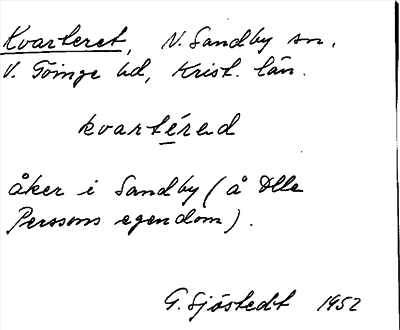 Kvarteret, N. Sandby sn,
V. Göinge hd, Krist. län.
kvartérəd
åker i Sandby (å Olle
Perssons egendom).
G. Sjöstedt 1952